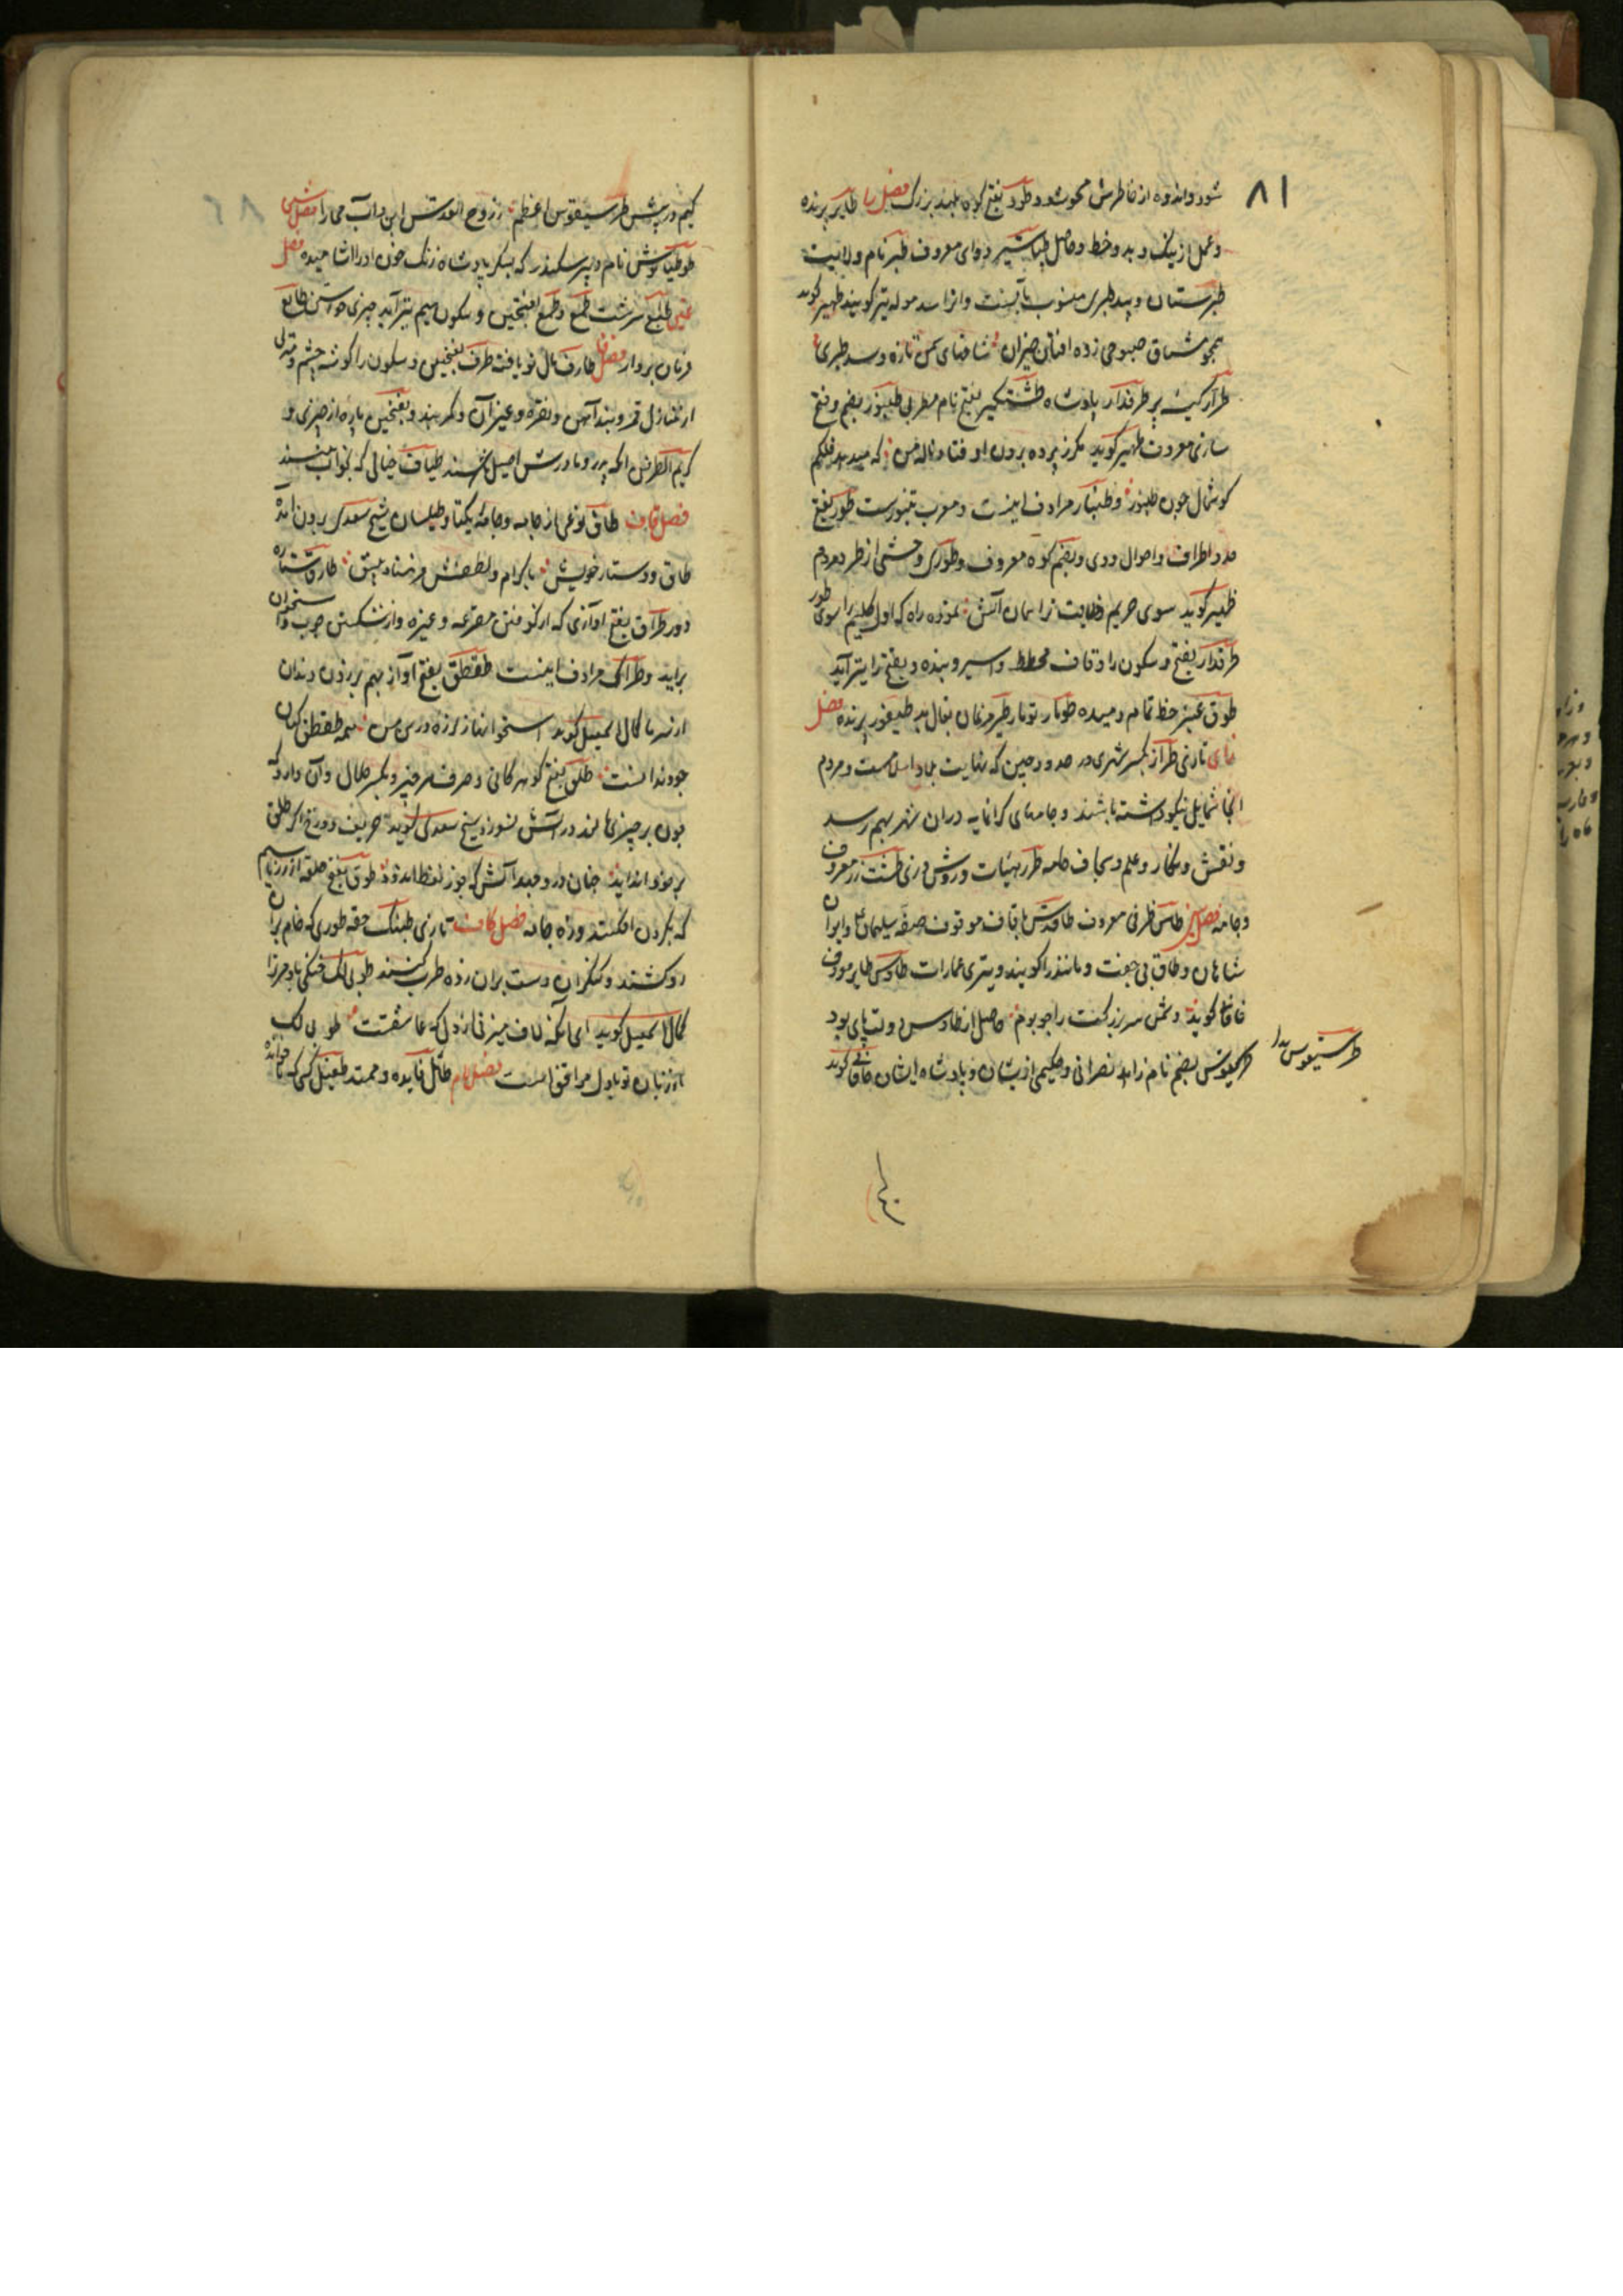 ۸۱
شود و اندوه از خاطرش محو شود طود بفتح کوه بلند بزرگ فصل را طایر پرنده
و عمل از نیک و بد و خط و حاصل طباشیر دوای معروف طبر نام ولایت
طبرستان و بید طبری منسوب بآنست و انرا بید موله نیز گویند ظهیر گوید
همچو عشاق صبوحی زده افتان خیزان شاخهای سمن تازه و بید طبری
طرار کیسه بر طرفدار پادشاه طشتگیر بفتح نام مطربی طنبور بضم و فتح
سازی معروف ظهیر گوید مگر ز پرده برون اوفتاد ناله من که میدهد فلکم
گوشمال چون طنبور و طنبار مرادف اینست و معرب تنبورست طور بفتح
حد و اطراف و احوال و وی و بضم کوه معروف و طوری وحشی از طیر و مردم
ظهیر گوید سوی حریم جلالت ز آسمان آتش نموده راه که اول کلیم را سوی طور
طرقدار بفتح و سکون را و قاف مخطط و اسیر و بنده و بفتح را نیز آید
طوق عنبر خط تمام دمیده طومار تومار طیر مرغان بفال بد طیفور پرنده فصل
زای تازی طراز بکسر شهری در حدود چین که نهایت بلاد اسلامست و مردم
آنجا شمایل نیکو داشته باشند و جامهای گرانمایه در آن شهر بهم رسد
و نقش و نگار و علم و سجاف جامه طرز هیئات و روش و زی طنز معروف
و جامه فصل سین طاس ظرفی معروف طاقدیس با قاف موقوف صفه سلیمان ع و ایوان
شاهان و طاق بی جفت و مانند را گویند و پیری عمارات طاوس طایر معروف
خاقانی گوید دشمن سر بزرگت راجو بوم حاصل از طاوس دولت پای بود
طرسیقوس بدل
طرطیوس بضم نام زاهد نصرانی و حکیمی از یشان و پادشاه ایشان خاقانی گوید
کنم در پیش طرسیقوس اعظم ز روح القدس ابن و اب مجارا فصل شین
طوطیانوش نام دبیر سکندر که بسکر پادشاه زنگ خون او را آشامیده فصل
عین طبع سرشت طمع و طمع بفتحتین و سکون میم نیز آید چیزی خواستن طایع
فرمان بردار فصل فا طارف مال نو یافت طرف بفتحتین و سکون را گوشه چشم و منزلی
از منازل قمر و بند آهن و نقره و غیر آن و کمربند و بفتحتین پاره از چیزی و
کریم الطرفین آنکه پدر و مادرش اصیل باشند طیاف خیالی که بخواب بینند
فصل قاف طاق نوعی از جامه و جامه یکتا و طیلسان شیخ سعدی برون آمد
طاق و دستار خویش باکرام و لطفش فرستاد پیش طارق ستاره
و ور طراق بفتح آوازی که از کوفتن مقرعه و غیره و از شکستن چوب و استخوان
براید و طراک مرادف اینست طقطق بفتح آواز بهم بر زدن دندان
از سرما کمال اسمعیل گوید استخوانها ز لرزه در تن من همه طقطق کنان
چو دندانست طلق بفتح گوهر کانی و صرف هر چیز و بکسر حلال و آن دارو که
چون بر چیزی مالند در آتش نسوزد شیخ سعدی گوید حریف دوزخ اگر طلق
بر خود انداید چنان درو جهد آتش که چوب نفط اندود طوق بفتح حلقه از زر و سیم
که بگردن افکنند و زه جامه فصل کاف تازی طبنک حقه طوری که خام بران
روکشند و منکران دست بران زده طرب کنند طوبی لک خنکی باد مر ترا
کمال اسمعیل گوید ای آنکه لاف میزنی از دل که عاشقست طوبی لک
ار زبان تو با دل موافق است فصل لام طائل فایده و ممتد طفیل کسی که ناخوانده